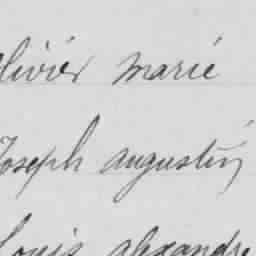 Olivier Marie
Joseph Augustin
Louis Alexandre